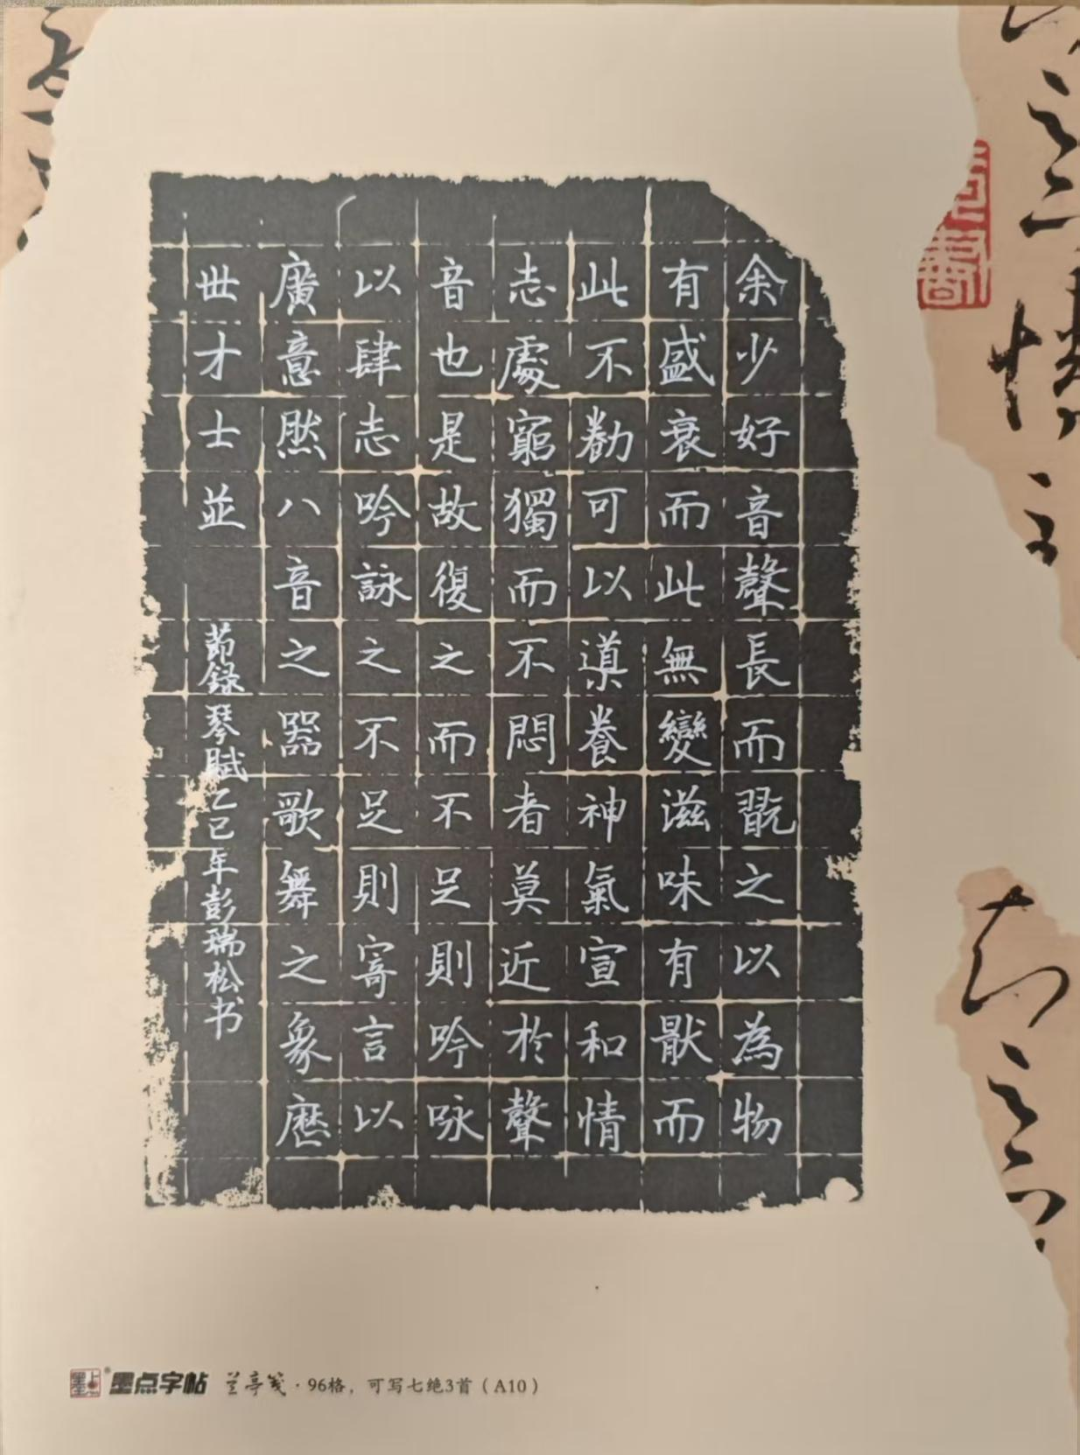 余少好音聲長而翫之以為物
有盛衰而此無變滋味有猒而
此不勌可以導養神氣宣和情
志處窮獨而不悶者莫近於聲
音也是故復之而不足則吟咏
以肆志吟詠之不足則寄言以
廣意然八音之器歌舞之象歷
世才士並
節錄琴賦乙巳年彭瑞松书
墨点字帖 兰亭笺·96格，可写七绝3首（A10）